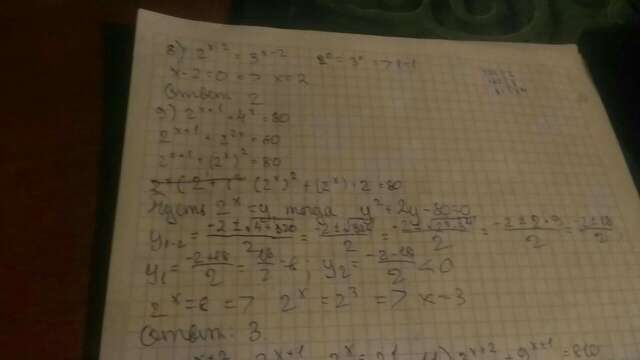 8) 2^{x-2} = 3^{x-2} 2^0 = 3^0 => 1=1
x-2=0 => x=2
Ответ: 2
9) 2^{x+1} + 4^x = 80
2^{x+1} + 2^{2x} = 80
2^{x+1} + (2^x)^2 = 80
(2^x)^2 + (2^x)·2 = 80
Пусть 2^x = y, тогда y^2 + 2y - 80 = 0
y_{1-2} = \frac{-2±\sqrt{4+320}}{2} = \frac{-2±\sqrt{324}}{2} = \frac{-2±}{2} = \frac{-2±2·9}{2} = \frac{-2±18}{2}
y_1 = \frac{-2+18}{2} = \frac{16}{2} = 8; y_2 = \frac{-2-18}{2} < 0
2^x = 8 => 2^x = 2^3 => x = 3
Ответ: 3